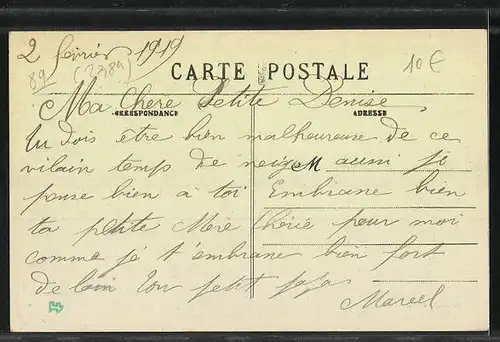 2 février 1919
89 (2384) 10€
CARTE POSTALE
Ma Chere Petite Denise
CORRESPONDANCE ADRESSE
Tu dois être bien malheureuse de ce
vilain temps de neige M aussi je
pense bien à toi Embrane bien
ta petite Mère Chérie pour moi
comme je t'embrane bien fort
de loin Ton petit papa
Marcel